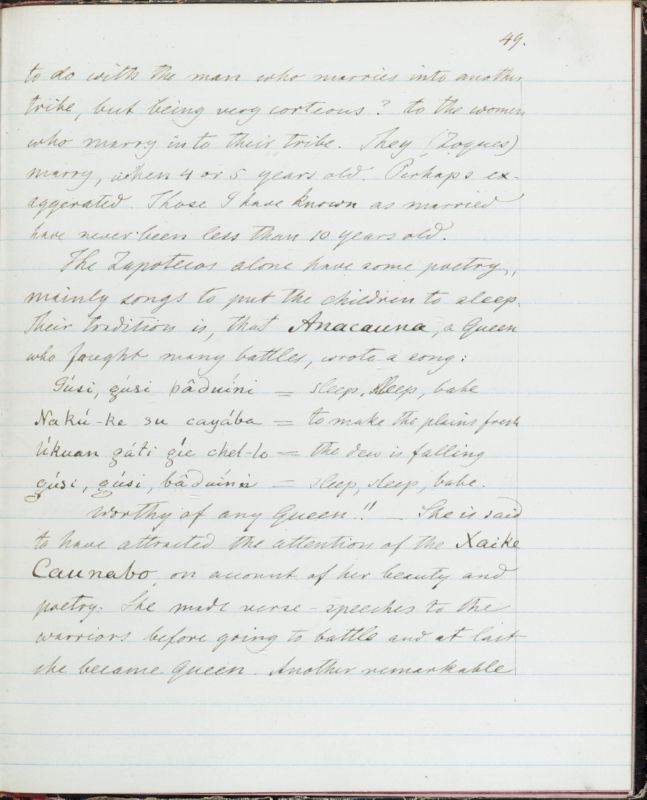 49.
to do with the man who marries into another
tribe, but being very corteous? to the women
who marry into their tribe. They (Zoques)
marry, when 4 or 5 years old. Perhaps ex-
aggerated. Those I have known as married
have never been less than 10 years old.
The Zapotecos alone have some poetry,
mainly songs to put the children to sleep.
Their tradition is, that Anacauna, a Queen
who fought many battles, wrote a song:
Gúsi, gúsi bâduíni = sleep, sleep, babe
Nakú-ke su cayába = to make the plains fresh
Úkuan gáti gíe chel-lo = the dew is falling
gúsi, gúsi, bâduíni = sleep, sleep, babe.
Worthy of any Queen!! — She is said
to have attracted the attention of the Xaike
Caunabo, on account of her beauty and
poetry. She made verse-speeches to the
warriors before going to battle and at last
she became Queen. Another remarkable